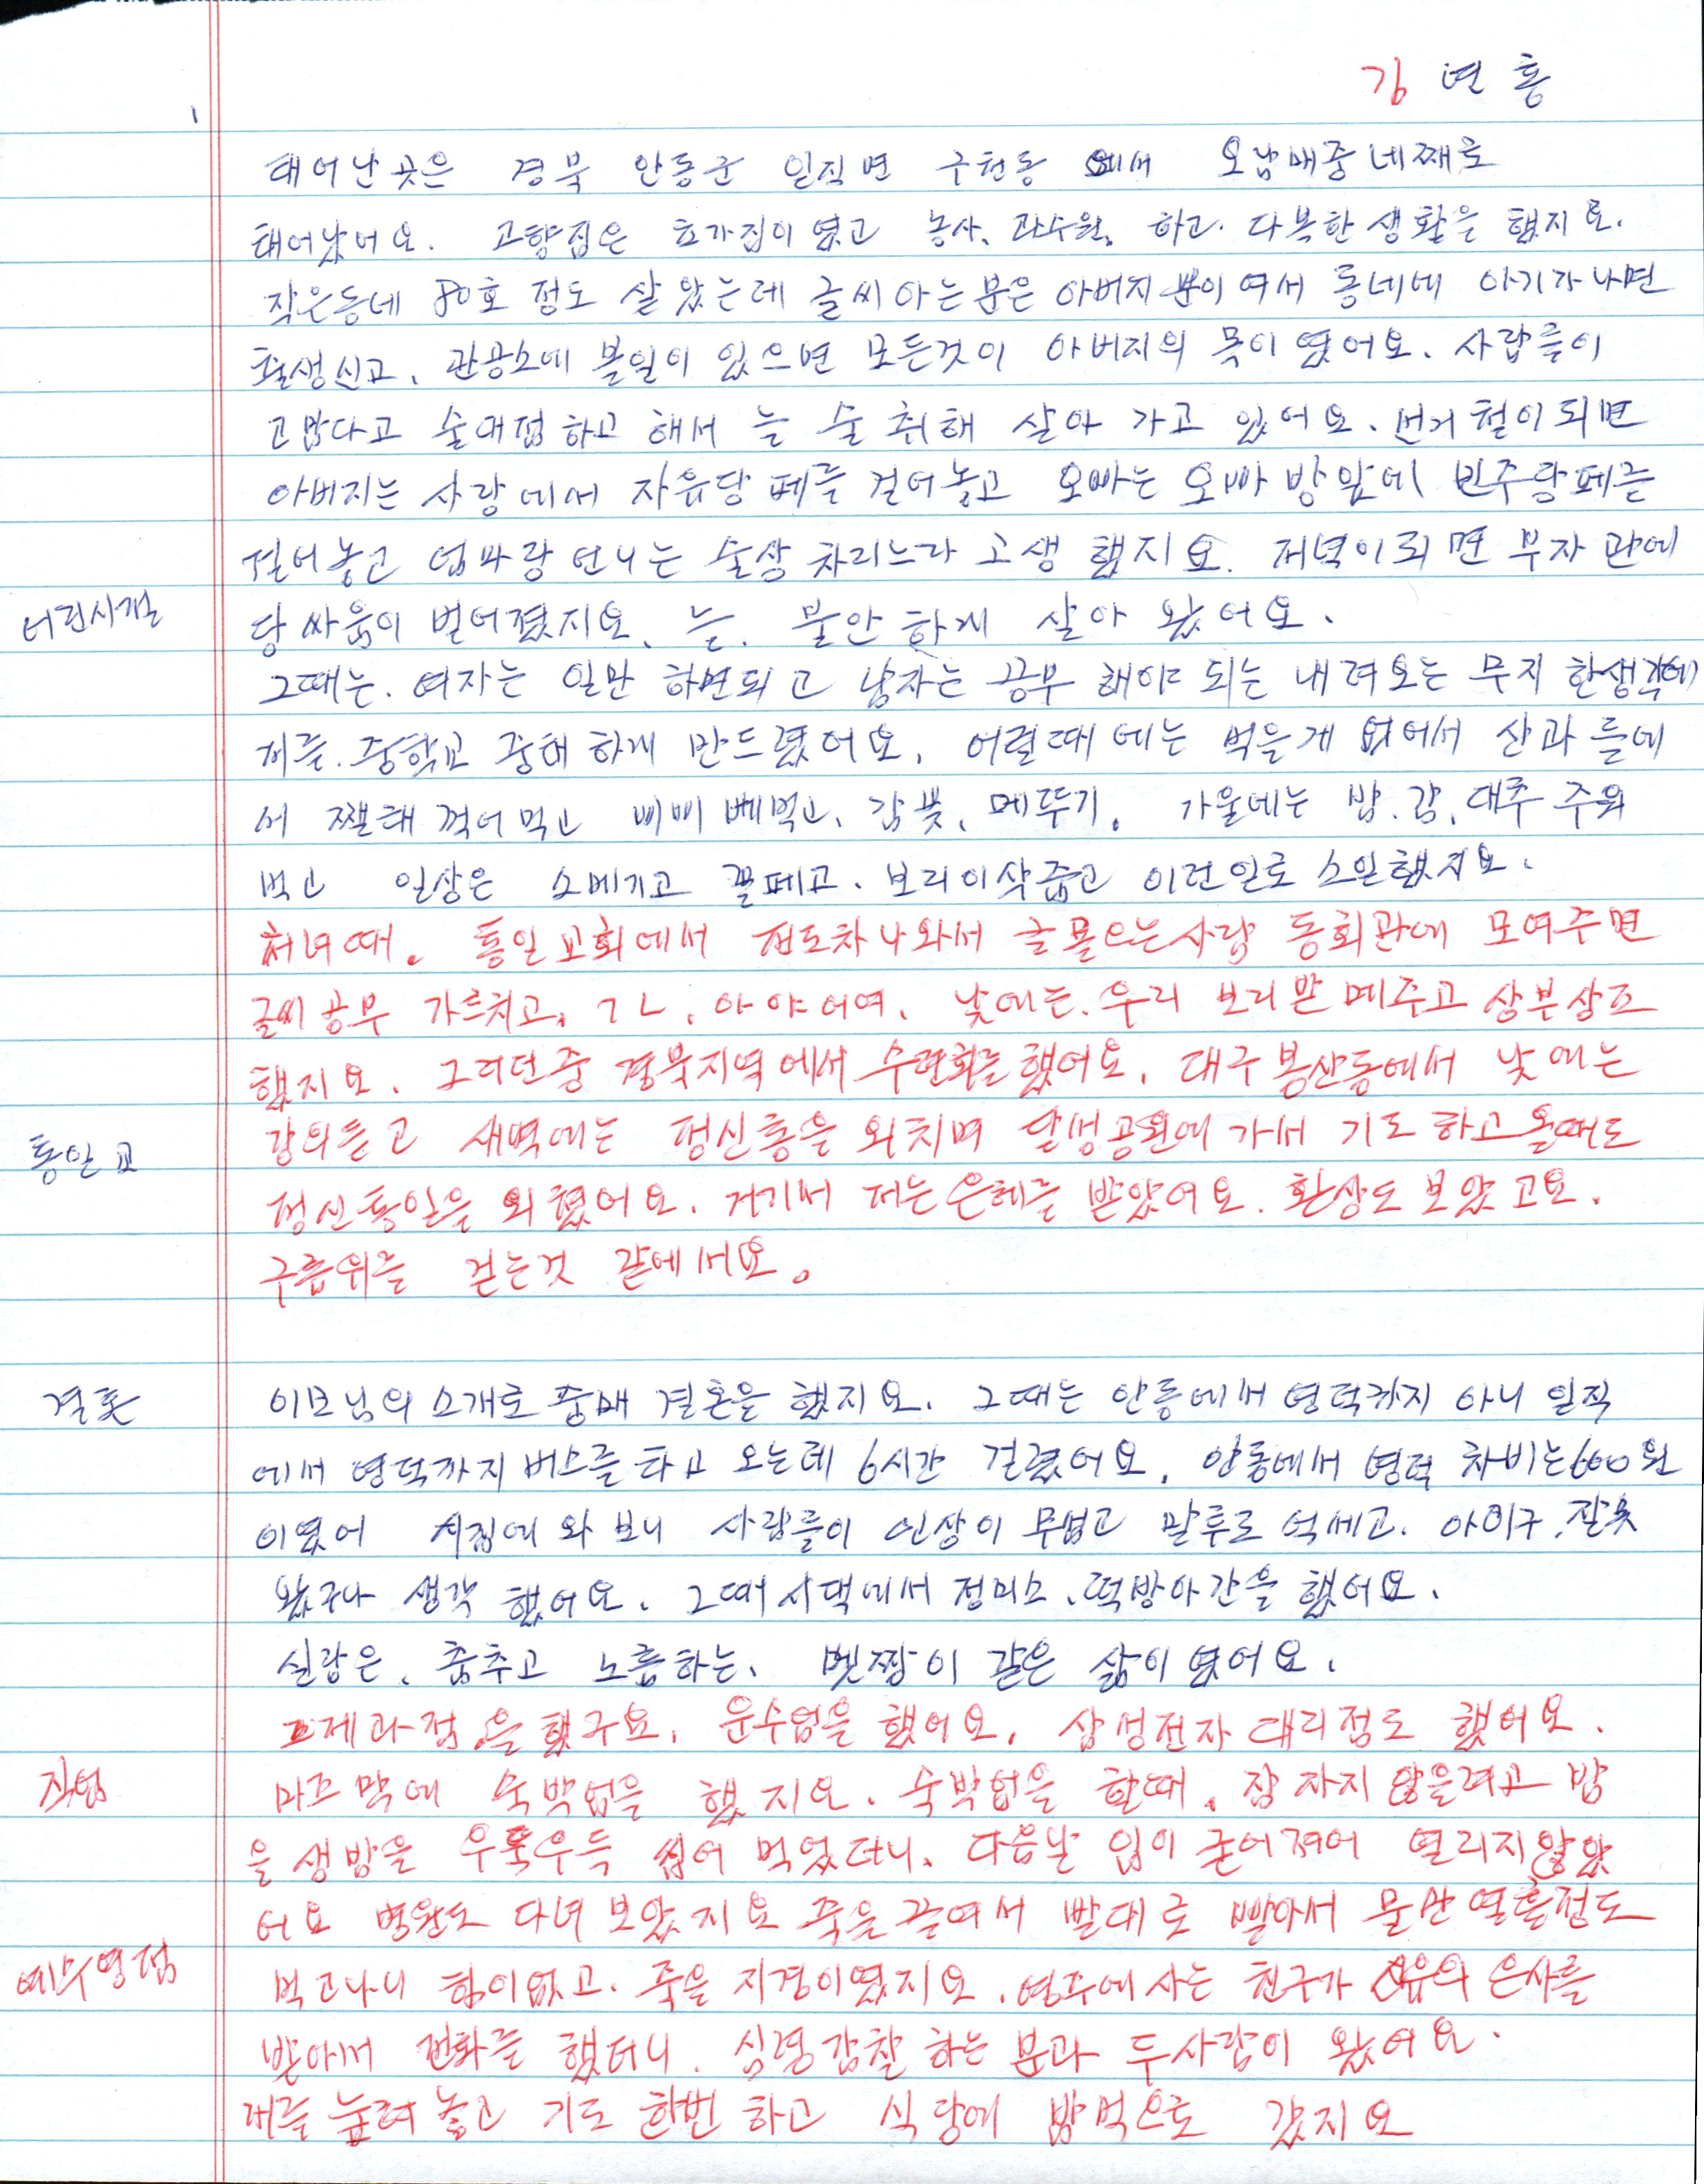 김 연 홍
1
태어난 곳은 경북 안동군 일직면 구천동 에서 오남매중 네째로
태어났어요. 고향집은 초가집이 였고 농사, 과수원, 하고. 다복한 생활을 했지요.
작은동네 80호 정도 살았는데 글씨 아는 분은 아버지 뿐이여서 동네에 아기가 나면
출생신고, 관공소에 볼일이 있으면 모든것이 아버지의 몫이 였어요. 사람들이
고맙다고 술대접하고 해서 늘 술 취해 살아 가고 있어요. 선거 철이 되면
아버지는 사랑에서 자유당 페를 걸어놓고 오빠는 오빠 방앞에 민주당페를
걸어놓고 엄마랑 언니는 술상 차리느라 고생 했지요. 저녁이 되면 부자 관에
어린시절
당 싸움이 벌어졌지요, 늘. 불안하게 살아 왔어요.
그때는. 여자는 일만 하면되고 남자는 공부 해야 되는 내려오는 무지 한생각에
저를. 중학교 중퇴 하게 만드렸어요. 어릴때 에는 먹을게 없어서 산과 들에
서 찔래 꺽어먹고 삐삐 빼먹고, 감꽃, 메뚜기. 가을에는 밤. 감, 대추 주워
먹고 일상은 소메기고 꼴페고. 보리이삭줍고 이런일로 소일했지요.
처녀때. 통일교회에서 전도차 나와서 글 몰으는사람 동회관에 모여주면
글씨 공부 가르치고, ㄱㄴ, 아야어여, 낮에는. 우리 보리밭 메주고 상부상조
했지요. 그러던중 경북지역에서 수련회를 했어요. 대구 봉산동에서 낮에는
통일교
강의듣고 새벽에는 정신통을 외치며 달성공원에 가서 기도 하고 올때도
정신통일을 외쳤어요. 거기서 저는 은혜를 받았어요. 환상도 보았고요.
구름위를 걷는것 같에서요.
결혼
이모님의 소개로 중매 결혼을 했지요. 그때는 안동에서 영덕까지 아니 일직
에서 영덕까지 버스를 타고 오는데 6시간 걸렸어요. 안동에서 영덕 차비는 600원
이였어 시집에 와 보니 사람들이 인상이 무섭고 말투로 억세고. 아이구, 잘못
왔구나 생각 했어요. 그때 시댁에서 정미소, 떡방아간을 했어요.
실랑은, 춤추고 노름하는, 벳짱이 같은 삶이였어요.
제과점을 했구요, 운수업을 했어요, 삼성전자 대리점도 했어요.
직업
마즈막에 숙박업을 했지요. 숙박업을 할때, 잠 자지 않을려고 밤
을 생밤을 우둑우득 씹어 먹었더니, 다음날 입이 굳어져어 열리지않았
어요 병원도 다녀 보았지요 죽을 끌여서 빨대로 빨아서 물만 열흘정도
예수영접
먹고나니 힘이없고. 죽을 지경이였지요. 영주에 사는 친구가 치유의 은사를
받아서 전화를 했더니. 심령감찰 하는 분과 두사람이 왔어요.
저를 눕혀 놓고 기도 한번 하고 식당에 밥먹으로 갔지요